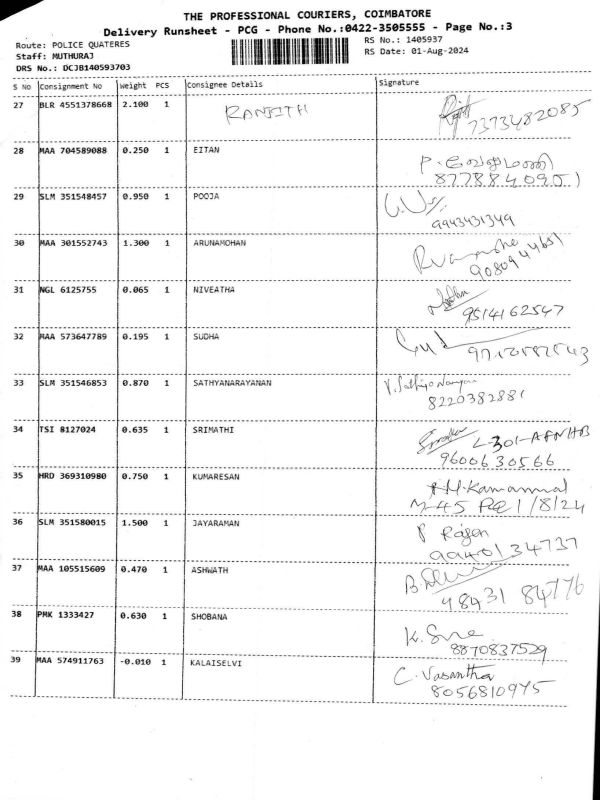 THE PROFESSIONAL COURIERS, COIMBATORE
Delivery Runsheet - PCG - Phone No.:0422-3505555 - Page No.:3
Route: POLICE QUATERES
RS No.: 1405937
Staff: MUTHURAJ
RS Date: 01-Aug-2024
DRS No.: DCJB140593703
S No Consignment No Weight PCS Consignee Details Signature
27 BLR 4551378668 2.100 1 RANJITH
7373482085
28 MAA 704589088 0.250 1 EITAN
P. வேலுமணி
8778840951
29 SLM 351548457 0.950 1 POOJA
9943431349
30 MAA 301552743 1.300 1 ARUNAMOHAN
9080944651
31 NGL 6125755 0.065 1 NIVEATHA
9514162547
32 MAA 573647789 0.195 1 SUDHA
33 SLM 351546853 0.870 1 SATHYANARAYANAN
V. Sathya Narayan
8220382881
34 TSI 8127024 0.635 1 SRIMATHI
L-301-AFNHB
9600630566
35 HRD 369310980 0.750 1 KUMARESAN
Kamammal
M-45 PRC 1/8/24
36 SLM 351580015 1.500 1 JAYARAMAN
P Rajan
9940134737
37 MAA 105515609 0.470 1 ASHWATH
98431 84776
38 PMK 1333427 0.630 1 SHOBANA
8870837529
39 MAA 574911763 -0.010 1 KALAISELVI
C. Vasantha
8056810975